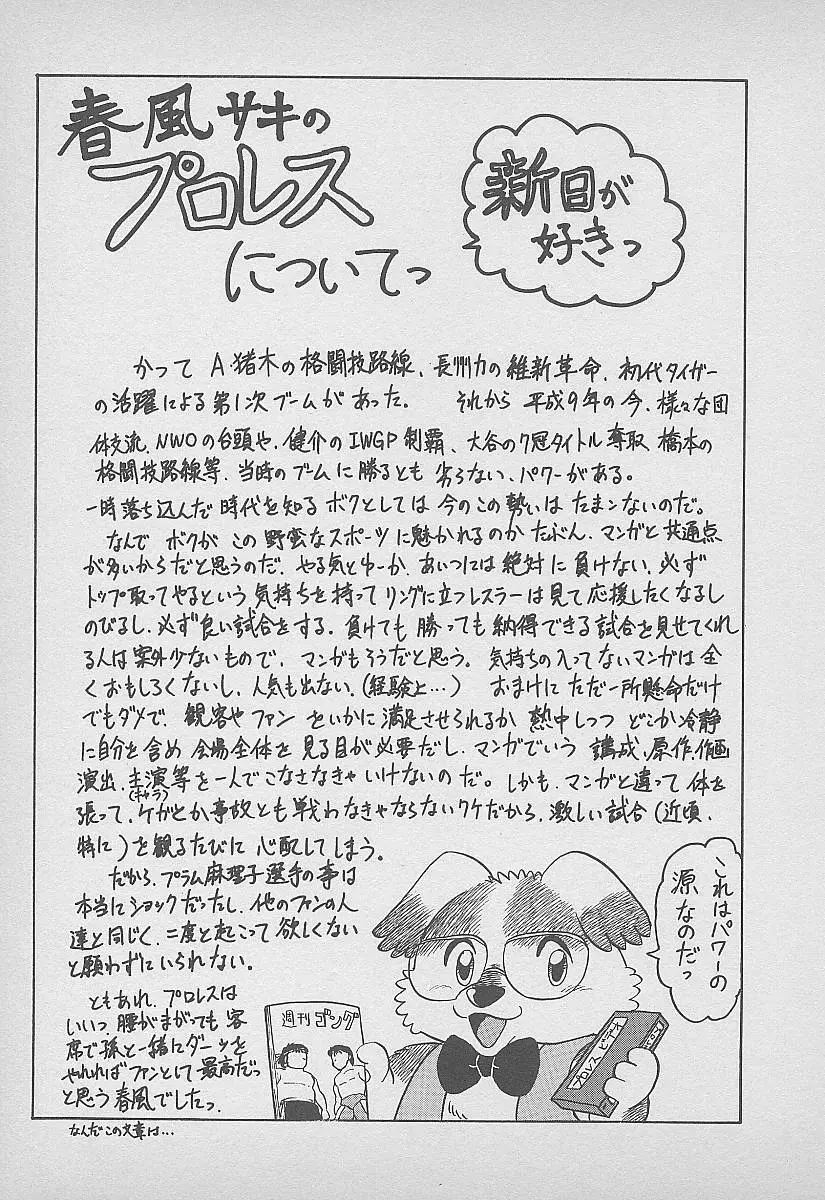 春風サキの
プロレス
についてっ
新日が
好きっ
かって A.猪木の格闘技路線、長州力の維新革命、初代タイガー
の活躍による第1次ブームがあった。 それから平成9年の今、様々な団
体交流、NWOの台頭や、健介のIWGP制覇、大谷の7冠タイトル奪取、橋本の
格闘技路線等、当時のブームに勝るとも劣らない、パワーがある。
一時落ち込んだ時代を知るボクとしては今のこの勢いはたまンないのだ。
なんでボクがこの野蛮なスポーツに魅かれるのかたぶん、マンガと共通点
が多いからだと思うのだ。やる気とゆーか、あいつには絶対に負けない、必ず
トップ取ってやるという気持ちを持ってリングに立つレスラーは見て応援したくなるし
のびるし、必ず良い試合をする。負けても勝っても納得できる試合を見せてくれ
る人は案外少ないもので、マンガもそうだと思う。気持ちの入ってないマンガは全
くおもしろくないし、人気も出ない、(経験上…) おまけにただ一所懸命だけ
でもダメで、観客やファンをいかに満足させられるか熱中しつつどこか冷静
に自分を含め会場全体を見る目が必要だし、マンガでいう構成、原作、作画
演出、主演等を一人でこなさなきゃいけないのだ。しかも、マンガと違って体を
(キャラ)
張って、ケガとか事故とも戦わなきゃならないワケだから、激しい試合(近頃、
特に)を観るたびに心配してしまう。
だから、プラム麻理子選手の事は
本当にショックだったし、他のファンの人
達と同じく、二度と起こって欲しくない
と願わずにいられない。
ともあれ、プロレスは
いいっ、腰がまがっても客
席で孫と一緒にダーッを
やれればファンとして最高だっ
と思う春風でしたっ
これはパワーの
源なのだっ
週刊ゴング
プロレスビデオ
なんだこの文章は…